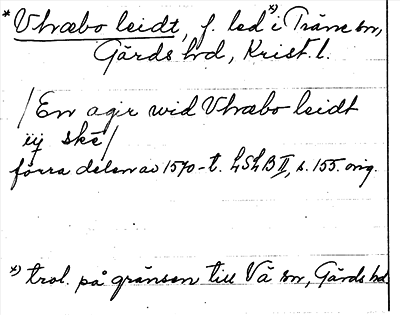 *Vhræbo leidt, f. led *) i Träne sn,
Gärds hd, Krist. l.
/En agir wid Vhræbo leidt
iij skē/
förra delen av 1570-t. LSLB II, s. 155. orig.
*) trol. på gränsen till Vä sn, Gärds hd